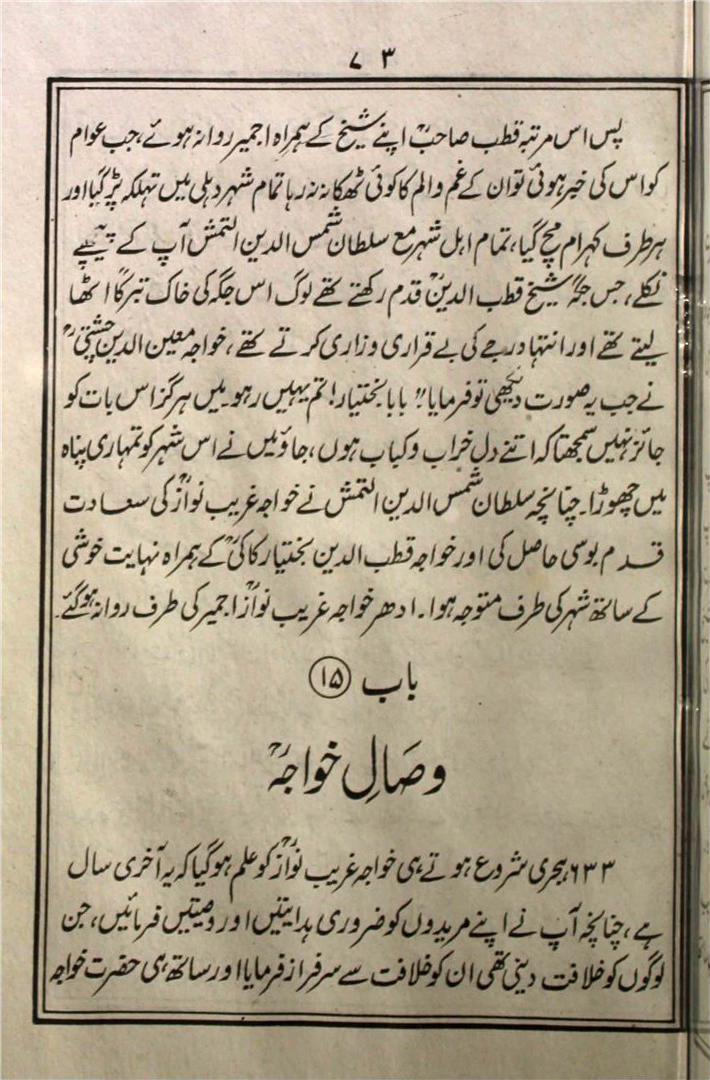 ۷۳
پس اس مرتبہ قطب صاحبؒ اپنے شیخ کے ہمراہ اجمیر روانہ ہوئے، جب عوام
کو اس کی خبر ہوئی تو ان کے غم و الم کا کوئی ٹھکانہ نہ رہا تمام شہر دہلی میں تہلکہ پڑ گیا اور
ہر طرف کہرام مچ گیا، تمام اہل شہر مع سلطان شمس الدین التمش آپ کے پیچھے
نکلے، جس جگہ شیخ قطب الدینؒ قدم رکھتے تھے لوگ اس جگہ کی خاک تبرکاً اٹھا
لیتے تھے اور انتہا درجے کی بے قراری و زاری کرتے تھے، خواجہ معین الدین چشتیؒ
نے جب یہ صورت دیکھی تو فرمایا "بابا بختیار! تم یہیں رہو میں ہرگز اس بات کو
جائز نہیں سمجھتا کہ اتنے دل خراب و کباب ہوں، جاؤ میں نے اس شہر کو تمہاری پناہ
میں چھوڑا۔ چنانچہ سلطان شمس الدین التمش نے خواجہ غریب نوازؒ کی سعادت
قدم بوسی حاصل کی اور خواجہ قطب الدین بختیار کاکیؒ کے ہمراہ نہایت خوشی
کے ساتھ شہر کی طرف متوجہ ہوا۔ ادھر خواجہ غریب نوازؒ اجمیر کی طرف روانہ ہوگئے۔
باب (۱۵)
وصَالِ خواجہؒ
۶۳۳ ہجری شروع ہوتے ہی خواجہ غریب نوازؒ کو علم ہوگیا کہ یہ آخری سال
ہے، چنانچہ آپ نے اپنے مریدوں کو ضروری ہدایتیں اور وصیتیں فرمائیں، جن
لوگوں کو خلافت دینی تھی ان کو خلافت سے سرفراز فرمایا اور ساتھ ہی حضرت خواجہ